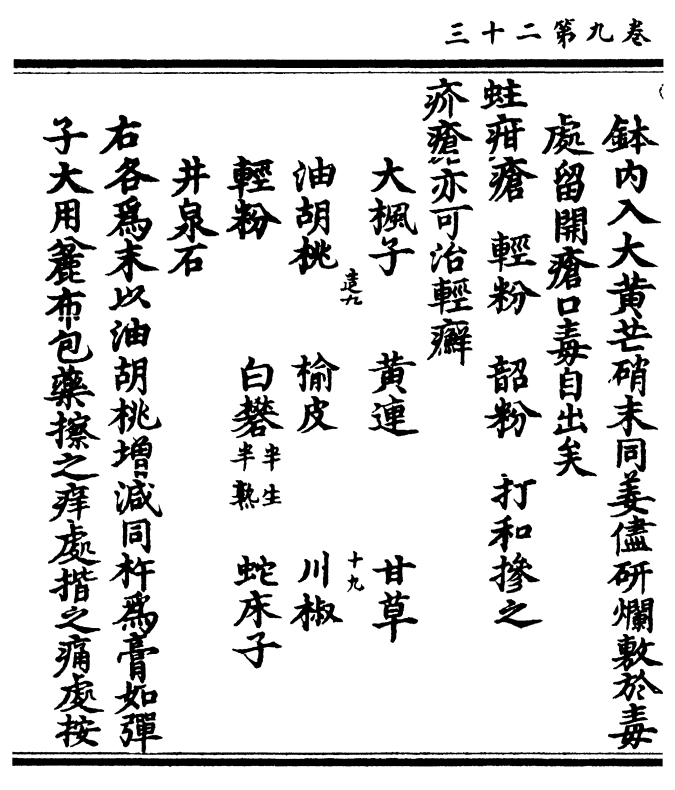 三十二第九卷
鉢内入大黄芒硝末同姜儘研爛敷於毒
處留開瘡口毒自出矣
蛀疳瘡 輕粉 韶粉 打和摻之
疥瘡亦可治輕癬
大楓子 黄連 甘草
油胡桃 榆皮 十九 川椒
輕粉 白礬半生半熟 蛇床子
井泉石
右各爲末以油胡桃增減同杵爲膏如彈
子大用麄布包藥擦之痒處揩之痛處按